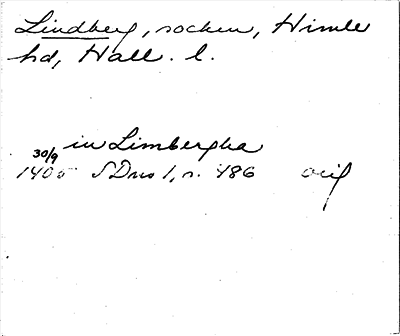 Lindberg, socken, Himle
hd, Hall. l.
in Limbergha
30/9
1405 SDns 1, n. 486 orig